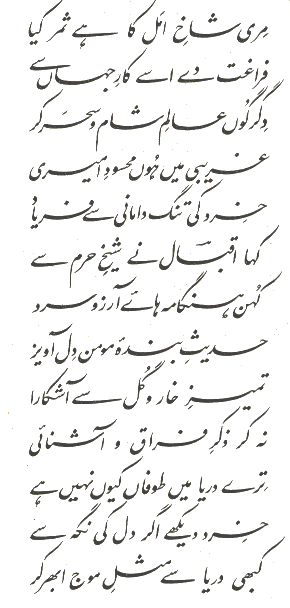 مری شاخِ امل کا ہے ثمر کیا
فراغت دے اسے کارِ جہاں سے
دِگرگُوں عالمِ شام و سحَر کر
غریبی میں ہُوں محسودِ امیری
خرد کی تنگ دامانی سے فریاد
کہا اقبالؔ نے شیخِ حرم سے
کُہن ہنگامہ ہائے آرزو سرد
حدیثِ بندۂ مومن دل آویز
تمیزِ خار و گُل سے آشکارا
نہ کر ذکرِ فراق و آشنائی
تِرے دریا میں طوفاں کیوں نہیں ہے
خرد دیکھے اگر دل کی نگہ سے
کبھی دریا سے مثلِ موج ابھر کر